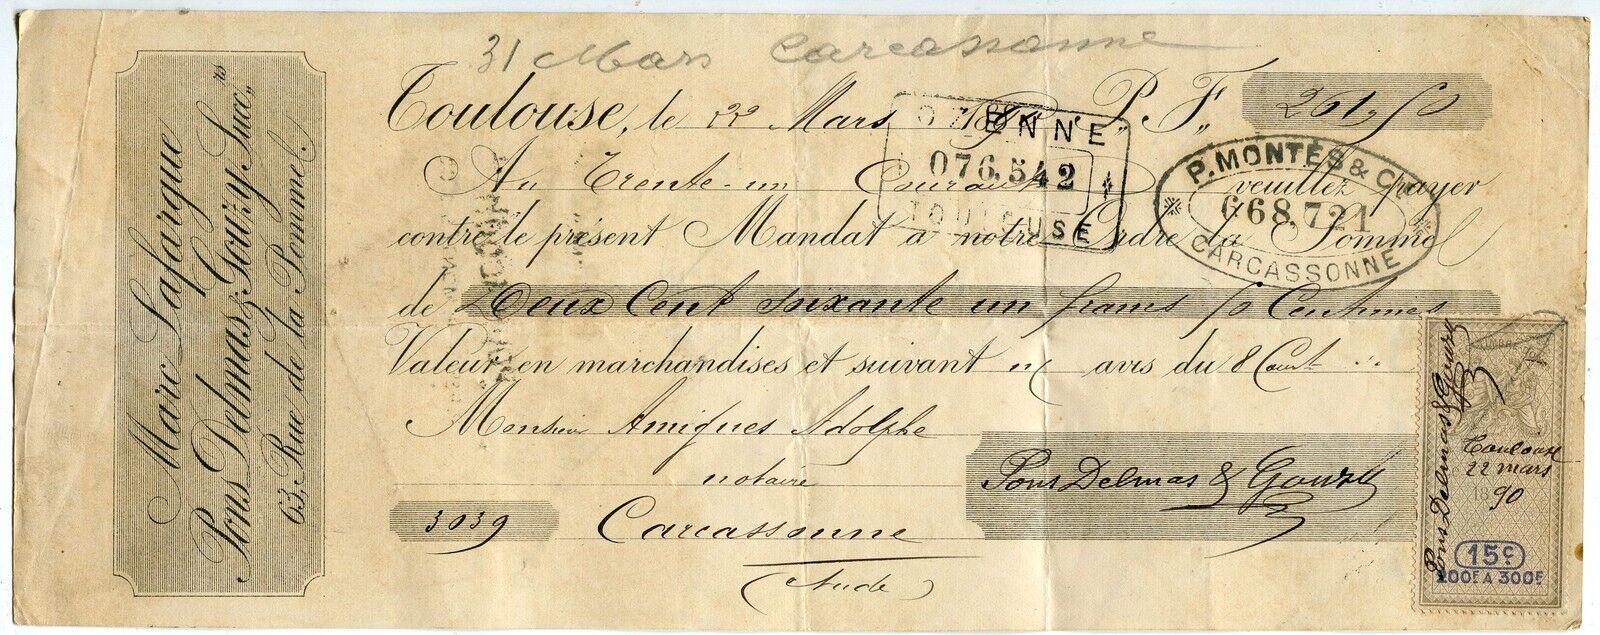 Marc Lafargue
Pons Delmas & Gouzy Succ.rs
63, Rue de la Pomme.
31 Mars Carcassonne
Toulouse, le 22 Mars 1890 P. F. 261,50
Au Trente-un Courant veuillez payer
contre le présent Mandat à notre Ordre la Somme
de Deux Cent soixante un francs 50 Centimes
Valeur en marchandises et suivant avis du 8 Court
Monsieur Amigues Adolphe
notaire
3039 Carcassonne
(Aude)
Pons Delmas & Gouzy
ENNE
076.542
TOULOUSE
P. MONTÈS & CIE
668.721
CARCASSONNE
Pons Delmas & Gouzy
Toulouse
22 mars
1890
15c
200F A 300F